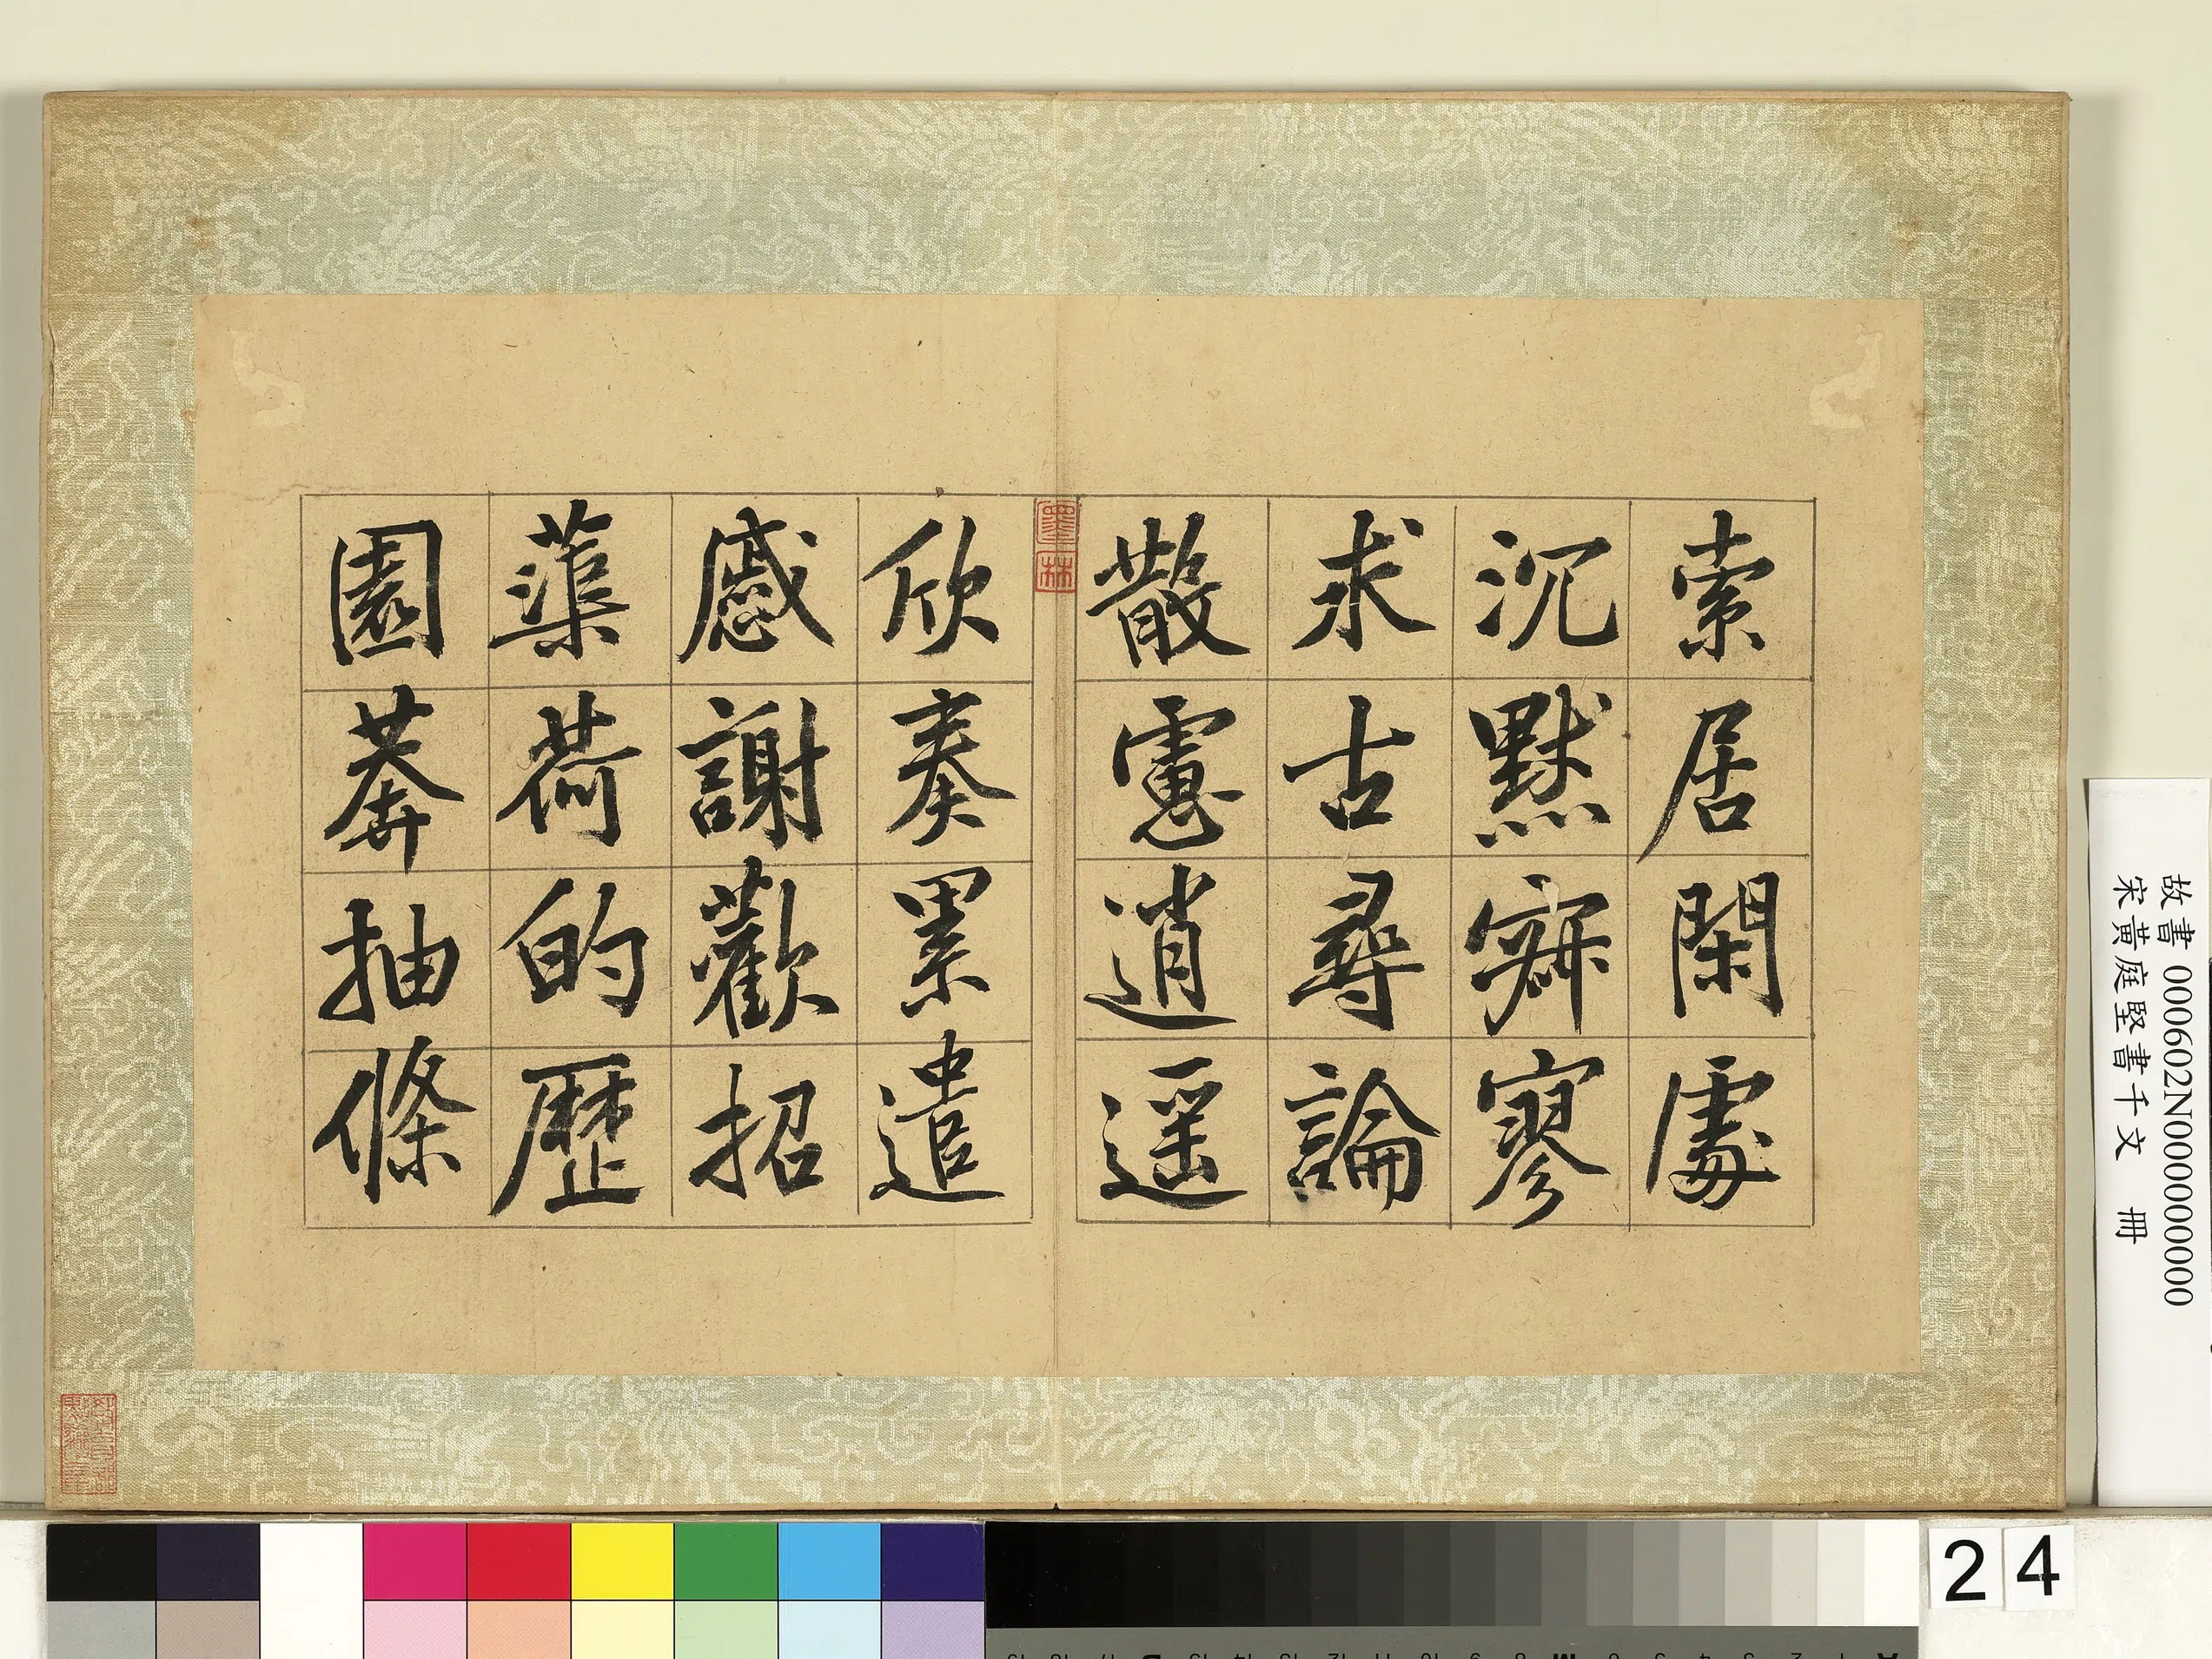 索居閑處
沉默寂寥
求古尋論
散慮逍遥
欣奏累遣
慼謝歡招
蕖荷的歷
園莽抽條
故書 000602N000000000
宋黃庭堅書千文 冊
24